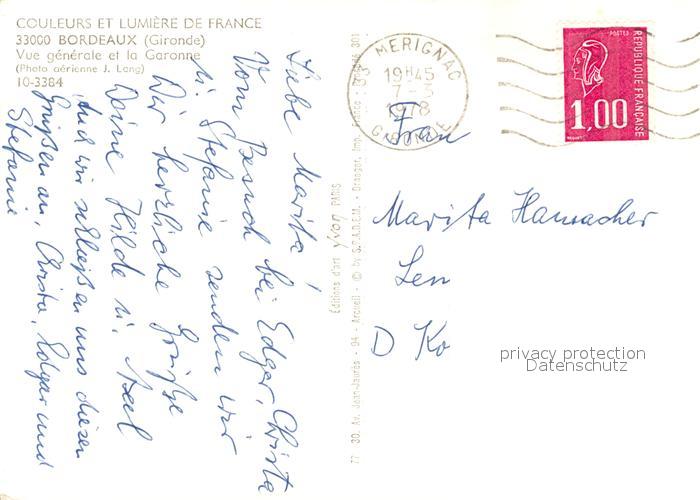 COULEURS ET LUMIÈRE DE FRANCE
33000 BORDEAUX (Gironde)
Vue générale et la Garonne
(Photo aérienne J. Lang)
10-3384
Liebe Marita!
Vom Besuch bei Edgar, Christa
u. Stefanie senden wir
Dir herzliche Grüße
Deine Hilde u. Axel
Und wir schließen uns diesen
Grüßen an, Christa, Edgar und
Stefanie
Editions d'art Yvon PARIS
33 MERIGNAC
19H45
7-3
1978
GIRONDE
POSTES
REPUBLIQUE FRANÇAISE
1,00
Frau
Marita Hausacher
Len
D Ko
privacy protection
Datenschutz